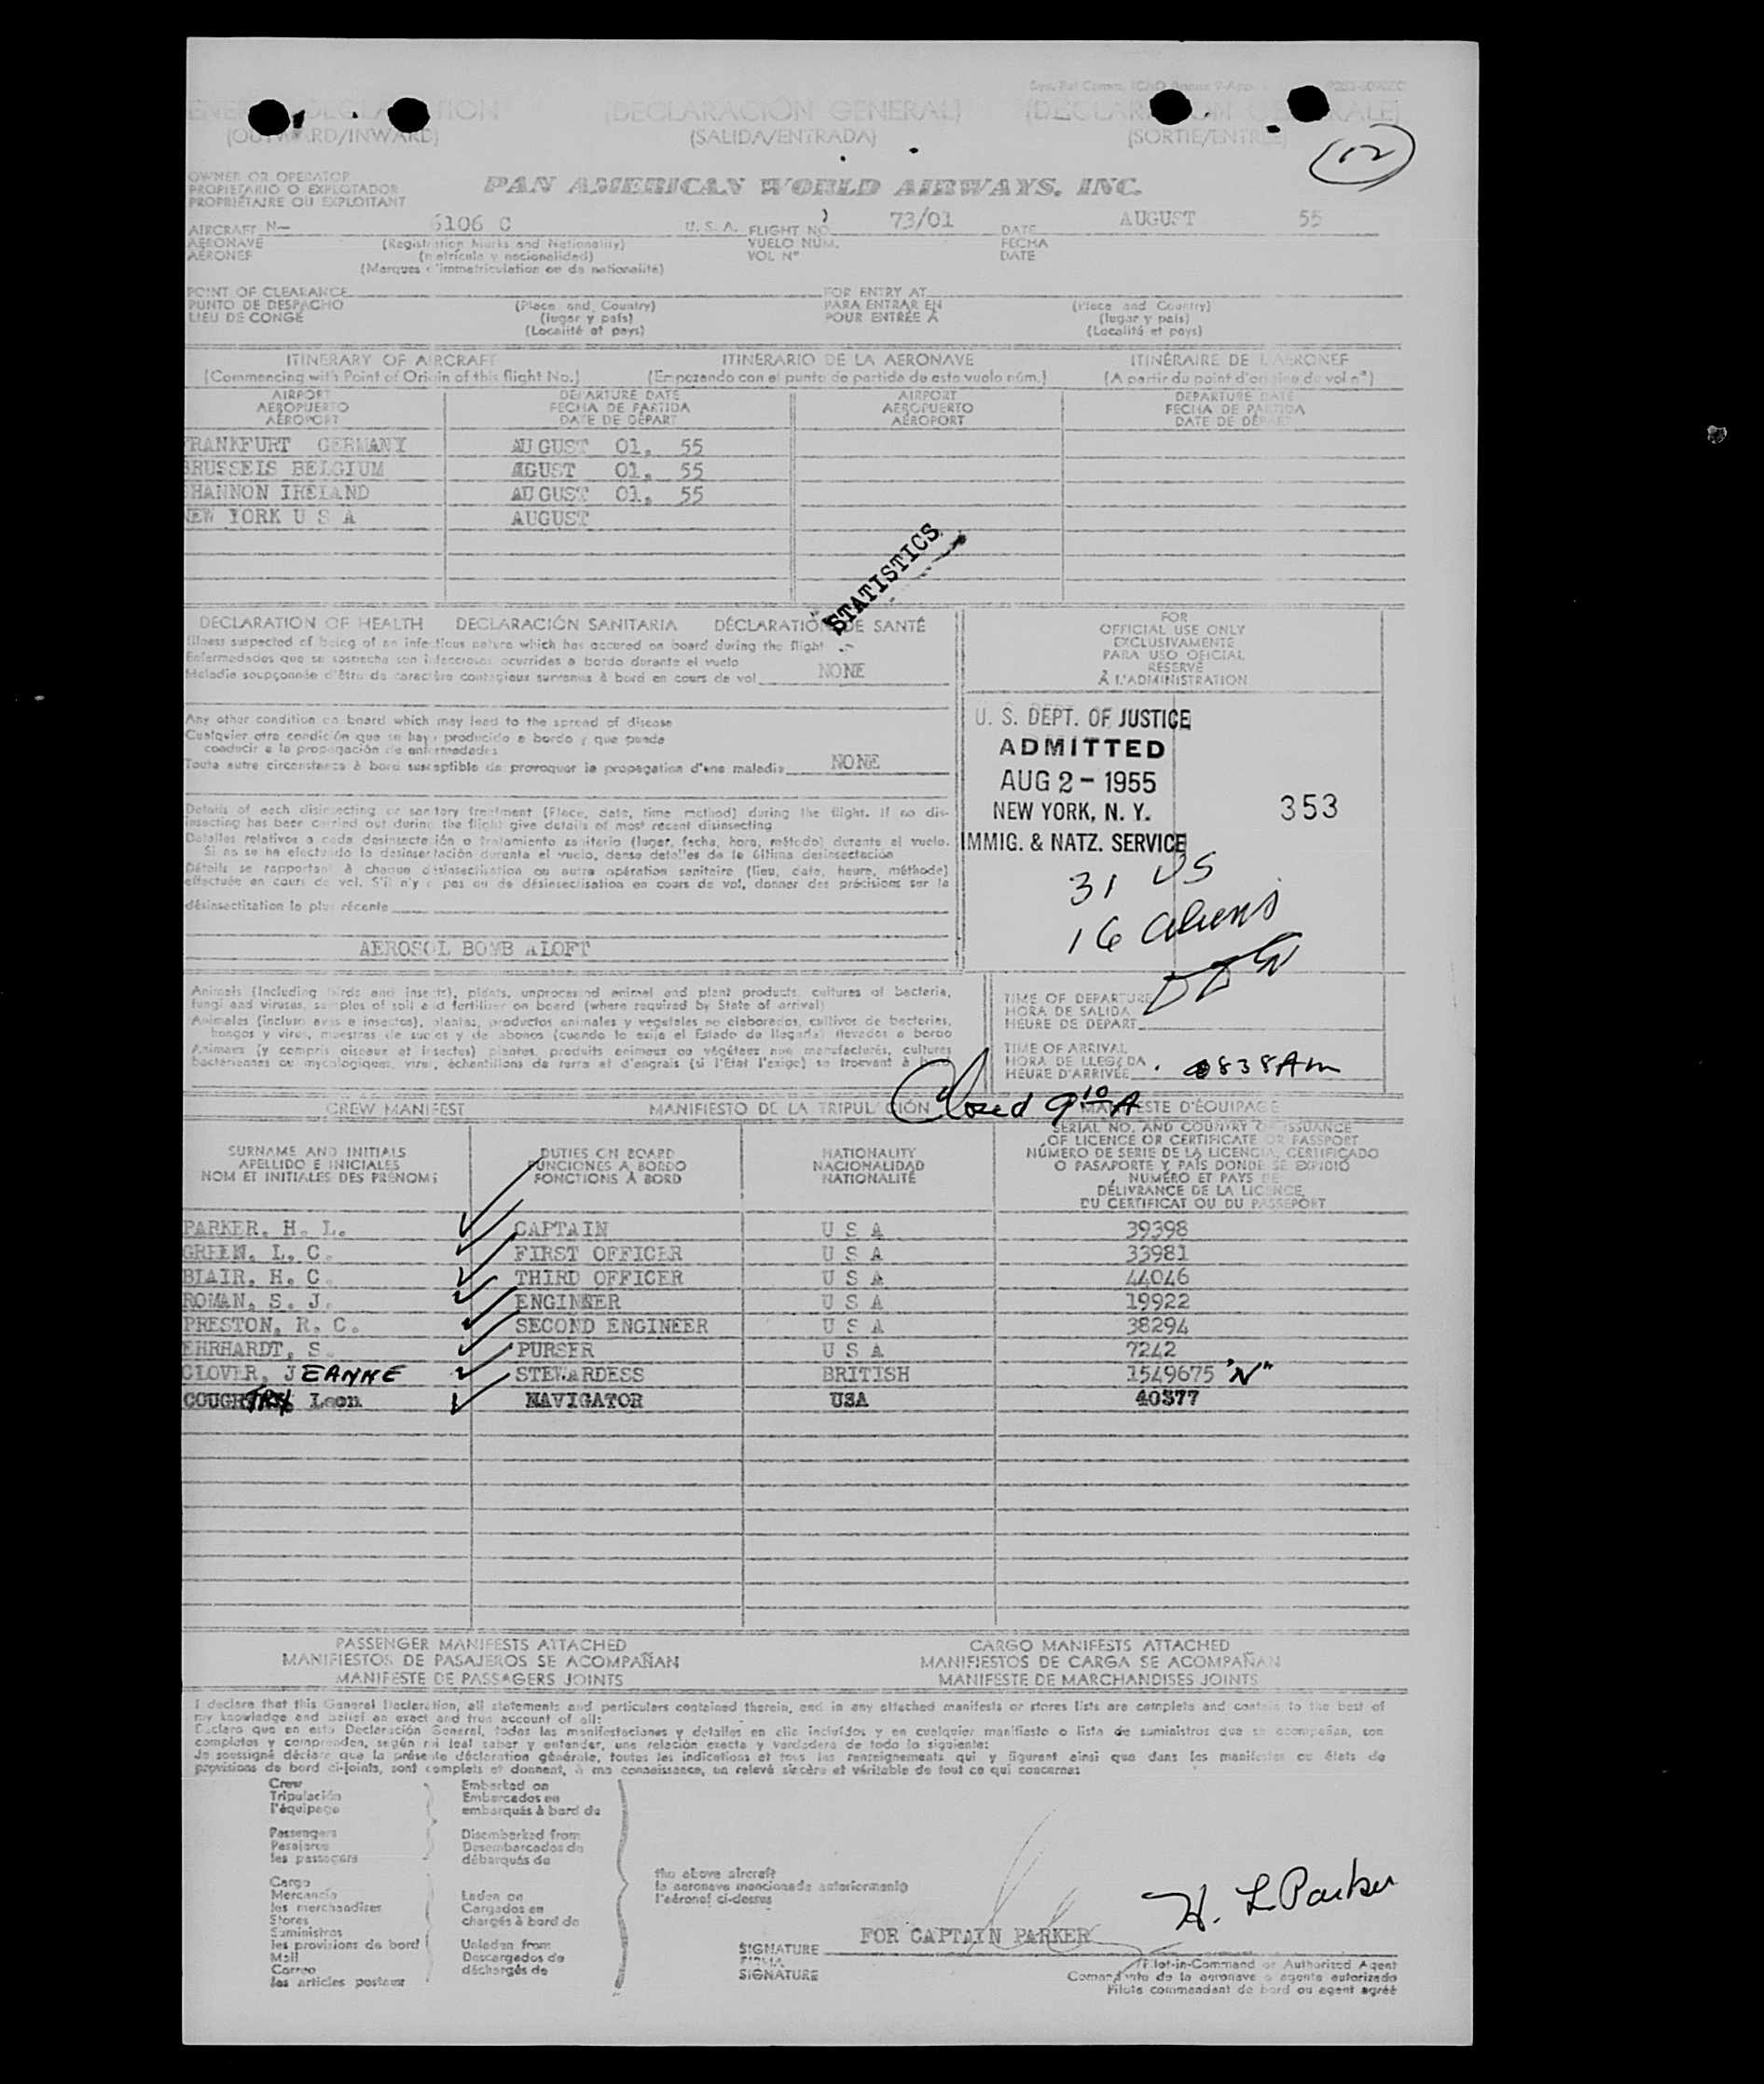 (DECLARACIÓN GENERAL)
(SALIDA/ENTRADA)
(SORTIE/ENTRÉE)
OWNER OR OPERATOR
PROPIETARIO O EXPLOTADOR
PROPRIÉTAIRE OU EXPLOITANT
PAN AMERICAN WORLD AIRWAYS, INC.
AIRCRAFT N— 6106 C U. S. A. FLIGHT NO. 73/01 DATE AUGUST 55
AERONAVE (Registration Marks and Nationality) VUELO NÚM. FECHA
AÉRONEF (matrícula y nacionalidad) VOL Nº DATE
(Marques d'immatriculation ou de nationalité)
POINT OF CLEARANCE FOR ENTRY AT
PUNTO DE DESPACHO (Place and Country) PARA ENTRAR EN (Place and Country)
LIEU DE CONGÉ (lugar y país) POUR ENTRÉE À (lugar y país)
(Localité et pays) (Localité et pays)
ITINERARY OF AIRCRAFT ITINERARIO DE LA AERONAVE ITINÉRAIRE DE L'AÉRONEF
(Commencing with Point of Origin of this flight No.) (Empezando con el punto de partida de este vuelo núm.) (A partir du point d'origine du vol nº)
AIRPORT DEPARTURE DATE AIRPORT DEPARTURE DATE
AEROPUERTO FECHA DE PARTIDA AEROPUERTO FECHA DE PARTIDA
AÉROPORT DATE DE DÉPART AÉROPORT DATE DE DÉPART
FRANKFURT GERMANY AUGUST 01, 55
BRUSSELS BELGIUM AGUST 01, 55
SHANNON IRELAND AUGUST 01, 55
NEW YORK U S A AUGUST
STATISTICS
DECLARATION OF HEALTH DECLARACIÓN SANITARIA DÉCLARATION DE SANTÉ
Illness suspected of being of an infectious nature which has occured on board during the flight
Enfermedades que se sospecha son infecciosas ocurridas a bordo durante el vuelo
Maladie soupçonnée d'être de caractère contagieux survenue à bord en cours de vol NONE
FOR
OFFICIAL USE ONLY
EXCLUSIVAMENTE
PARA USO OFICIAL
RÉSERVÉ
À L'ADMINISTRATION
Any other condition on board which may lead to the spread of disease
Cualquier otra condición que se haya producido a bordo y que pueda
conducir a la propagación de enfermedades
Toute autre circonstance à bord susceptible de provoquer la propagation d'une maladie NONE
U. S. DEPT. OF JUSTICE
ADMITTED
AUG 2 - 1955
NEW YORK, N. Y. 353
IMMIG. & NATZ. SERVICE
31 US
16 aliens
Details of each disinsecting or sanitary treatment (Place, date, time method) during the flight. If no dis-
insecting has been carried out during the flight give details of most recent disinsecting
Detalles relativos a cada desinsectación o tratamiento sanitario (lugar, fecha, hora, método) durante el vuelo.
Si no se ha efectuado la desinsectación durante el vuelo, dense detalles de la última desinsectación
Détails se rapportant à chaque désinsectisation ou autre opération sanitaire (lieu, date, heure, méthode)
effectuée en cours de vol. S'il n'y a pas eu de désinsectisation en cours de vol, donner des précisions sur la
désinsectisation la plus récente
AEROSOL BOMB ALOFT
Animals (Including birds and insects), plants, unprocessed animal and plant products, cultures of bacteria,
fungi and viruses, samples of soil and fertilizer on board (where required by State of arrival)
Animales (incluso aves e insectos), plantas, productos animales y vegetales no elaborados, cultivos de bacterias,
hongos y virus, muestras de suelos y de abonos (cuando lo exija el Estado de llegada) llevados a bordo
Animaux (y compris oiseaux et insectes) plantes, produits animaux ou végétaux non manufacturés, cultures
bactériennes ou mycologiques, virus, échantillons de terre et d'engrais (si l'État l'exige) se trouvant à
TIME OF DEPARTURE
HORA DE SALIDA
HEURE DE DÉPART
TIME OF ARRIVAL
HORA DE LLEGADA
HEURE D'ARRIVÉE 0838 Am
Closed 9 10 A
CREW MANIFEST MANIFIESTO DE LA TRIPULACIÓN MANIFESTE D'ÉQUIPAGE
SURNAME AND INITIALS
APELLIDO E INICIALES
NOM ET INITIALES DES PRÉNOMS
DUTIES ON BOARD
FUNCIONES A BORDO
FONCTIONS À BORD
NATIONALITY
NACIONALIDAD
NATIONALITÉ
SERIAL NO. AND COUNTRY OF ISSUANCE
OF LICENCE OR CERTIFICATE OR PASSPORT
NÚMERO DE SERIE DE LA LICENCIA, CERTIFICADO
O PASAPORTE Y PAÍS DONDE SE EXPIDIÓ
NUMÉRO ET PAYS DE
DÉLIVRANCE DE LA LICENCE,
DU CERTIFICAT OU DU PASSEPORT
PARKER, H. L. CAPTAIN U S A 39398
GREEN, L. C. FIRST OFFICER U S A 33981
BLAIR, H. C. THIRD OFFICER U S A 44046
ROMAN, S. J. ENGINEER U S A 19922
PRESTON, R. C. SECOND ENGINEER U S A 38294
EHRHARDT, S. PURSER U S A 7242
CLOVER, JEANNE STEWARDESS BRITISH 1549675 "N"
COUGHTRY Leon NAVIGATOR USA 40377
PASSENGER MANIFESTS ATTACHED CARGO MANIFESTS ATTACHED
MANIFIESTOS DE PASAJEROS SE ACOMPAÑAN MANIFIESTOS DE CARGA SE ACOMPAÑAN
MANIFESTE DE PASSAGERS JOINTS MANIFESTE DE MARCHANDISES JOINTS
I declare that this General Declaration, all statements and particulars contained therein, and in any attached manifests or stores lists are complete and contain to the best of
my knowledge and belief an exact and true account of all:
Declaro que en esta Declaración General, todas las manifestaciones y detalles en ella incluídos y en cualquier manifiesto o lista de suministros que se acompañan, son
completos y comprenden, según mi leal saber y entender, una relación exacta y verdadera de todo lo siguiente:
Je soussigné déclare que la présente déclaration générale, toutes les indications et tous les renseignements qui y figurent ainsi que dans les manifestes ou états de
provisions de bord ci-joints, sont complets et donnent, à ma connaissance, un relevé sincère et véritable de tout ce qui concerne:
Crew Embarked on
Tripulación Embarcados en
l'équipage embarqués à bord de
Passengers Disembarked from
Pasajeros Desembarcados de
les passagers débarqués de
the above aircraft
la aeronave mencionada anteriormente
l'aéronef ci-dessus
Cargo
Mercancía Laden on
les marchandises Cargados en
Stores chargés à bord de
Suministros
les provisions de bord Unladen from
Mail Descargados de
Correo déchargés de
les articles postaux
H. L Parker
SIGNATURE FOR CAPTAIN PARKER
FIRMA
SIGNATURE
Pilot-in-Command or Authorized Agent
Comandante de la aeronave o agente autorizado
Pilote commandant de bord ou agent agréé